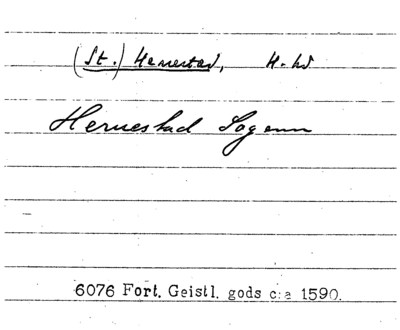 (St.) Herrestad, H. hd
Herrestad Sogenn
6076 Fort. Geistl. gods c:a 1590.